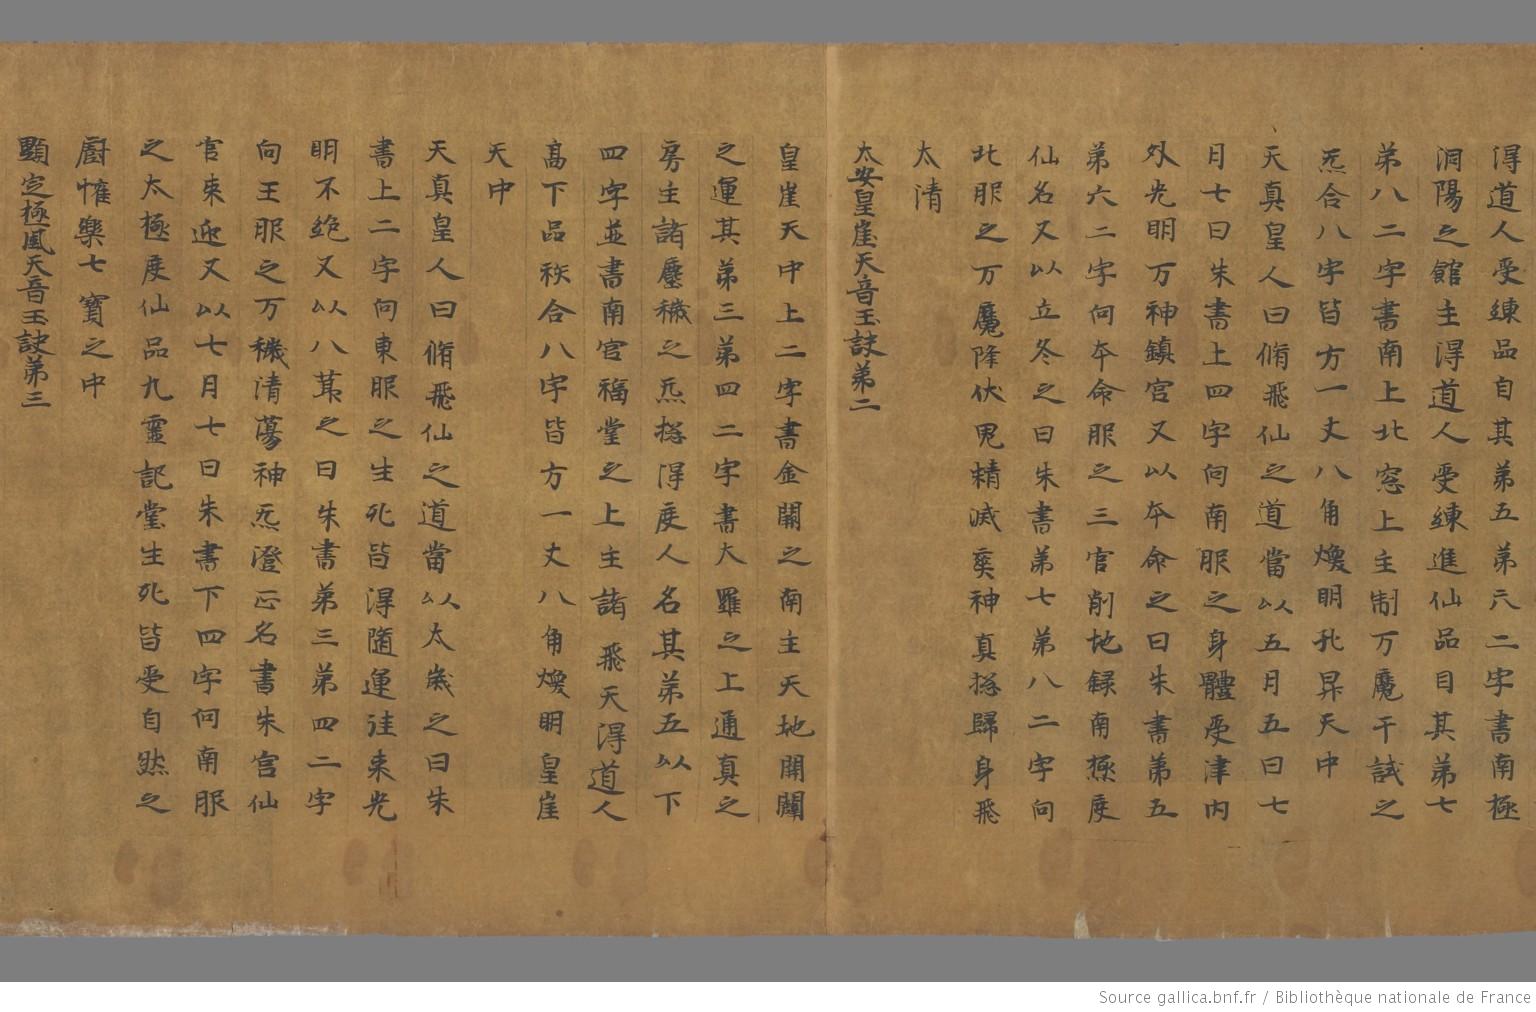 得道人受練品自其第五第六二字書南極
洞陽之館主得道人受練進仙品目其第七
第八二字書南上北窓上主制万魔干試之
炁合八字皆方一丈八角煥明孔昇天中
天真皇人曰脩飛仙之道當以五月五日七
月七日朱書上四字向南服之身體受津內
外光明万神鎮宮又以夲命之日朱書第五
第六二字向夲命服之三官削地録南極度
仙名又以立冬之日朱書第七第八二字向
北服之万魔降伏鬼精滅爽神真摠歸身飛
太清
太安皇崖天音玉訣第二
皇崖天中上二字書金闕之南主天地開闢
之運其第三第四二字書大羅之上通真之
房主諸塵穢之炁摠得度人名其第五以下
四字並書南宮福堂之上主諸飛天得道人
高下品秩合八字皆方一丈八角煥明皇崖
天中
天真皇人曰脩飛仙之道當以太歲之日朱
書上二字向東服之生死皆得隨運往來光
明不絕又以八莭之日朱書第三第四二字
向王服之万穢清蕩神炁澄正名書朱宮仙
官來迎又以七月七日朱書下四字向南服
之太極度仙品九靈記堂生死皆受自然之
廚帷樂七寶之中
顯定極風天音玉訣第三
Source gallica.bnf.fr / Bibliothèque nationale de France